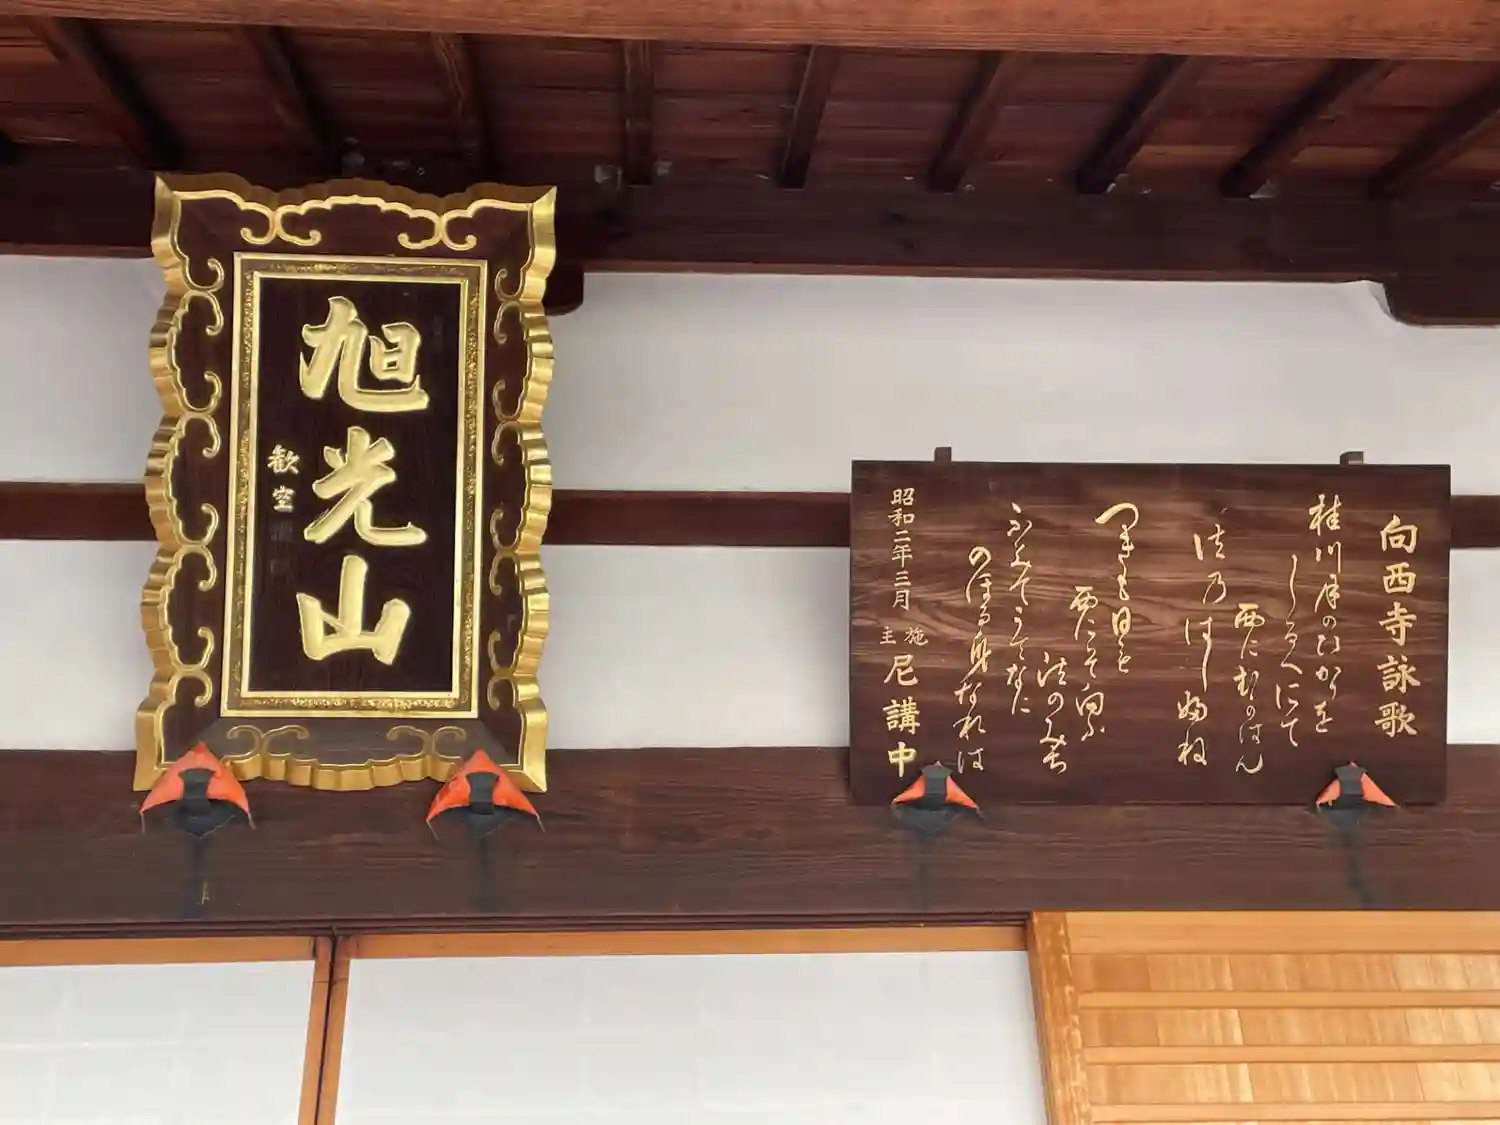 旭光山
歓空
向西寺詠歌
桂川月のひかりを
しるべにて
西にむかはん
法乃はし婦ね
つきも日も
西にこそ向ふ
法のみち
のほる身なれは
昭和二年三月
施主
尼講中